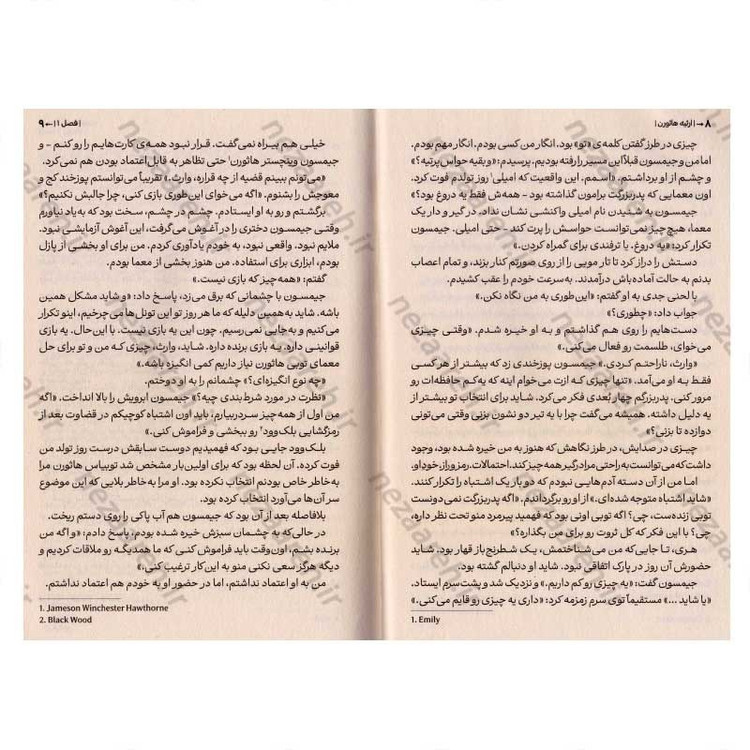 ۸ → | ارثیه هاثورن |
چیزی در طرز گفتن کلمه‌ی «تو» بود. انگار من کسی بودم. انگار مهم بودم.
اما من و جیمسون قبلاً این مسیر را رفته بودیم. پرسیدم: «و بقیه حواس پرتیه؟»
و چشم از او برداشتم، «اسمم. این واقعیت که امیلی¹ روز تولدم فوت کرد.
اون معمایی که پدربزرگت برامون گذاشته بود - همه‌ش فقط یه دروغ بود؟»
جیمسون به شنیدن نام امیلی واکنشی نشان نداد. در گیر و دار یک
معما، هیچ چیز نمی‌توانست حواسش را پرت کند - حتی امیلی. جیمسون
تکرار کرد: «یه دروغ. یا ترفندی برای گمراه کردن.»
دستش را دراز کرد تا مویی را از روی صورتم کنار بزند، و تمام اعصاب
بدنم به حالت آماده‌باش درآمدند. به‌سرعت خودم را عقب کشیدم.
با لحنی جدی به او گفتم: «این‌طوری به من نگاه نکن.»
جواب داد: «چطوری؟»
دست‌هایم را روی هم گذاشتم و به او خیره شدم. «وقتی چیزی
می‌خوای، طلسمت رو فعال می‌کنی.»
«وارث، ناراحتم کردی.» جیمسون پوزخندی زد که بیشتر از هر کسی
فقط به او می‌آمد. «تنها چیزی که ازت می‌خوام اینه که یه‌کم حافظه‌ات رو
مرور کنی. پدربزرگم چهار بُعدی فکر می‌کرد. شاید برای انتخاب تو بیشتر از
یه دلیل داشته. همیشه می‌گفت چرا با یه تیر دو نشون بزنی وقتی می‌تونی
دوازده تا بزنی؟»
چیزی در صدایش، در طرز نگاهش که هنوز به من خیره شده بود، وجود
داشت که می‌توانست به راحتی مرا درگیر همه چیز کند. احتمالات. رمز و راز. خودِ او.
اما من از آن دسته آدم‌هایی نبودم که دو بار یک اشتباه را تکرار کنند.
«شاید اشتباه متوجه شده‌ای.» از او رو برگرداندم. «اگه پدربزرگت نمی‌دونست
توبی زنده‌ست، چی؟ اگه توبی اونی بود که فهمید پیرمرد منو تحت نظر داره،
چی؟ با این فکر که کل ثروت رو برای من بگذاره؟»
هری، تا جایی‌که من می‌شناختمش، یک شطرنج‌باز قهار بود. شاید
حضورش آن روز در پارک اتفاقی نبود. شاید او دنبالم گشته بود.
جیمسون گفت: «یه چیزی رو کم داریم.» و نزدیک شد و پشت سرم ایستاد.
«یا شاید ...» مستقیماً توی سرم زمزمه کرد: «داری یه چیزی رو قایم می‌کنی.»
1. Emily
| فصل ۱ | ← ۹
خیلی هم بیراه نمی‌گفت. قرار نبود همه‌ی کارت‌هایم را رو کنم - و
جیمسون وینچستر هاثورن¹ حتی تظاهر به قابل‌اعتماد بودن هم نمی‌کرد.
«می‌تونم ببینم قضیه از چه قراره، وارث.» تقریباً می‌توانستم پوزخند کج و
معوجش را بشنوم. «اگه می‌خوای این‌طوری بازی کنی، چرا جالبش نکنیم؟»
برگشتم و رو به او ایستادم. چشم در چشم، سخت بود که به یاد نیاورم
وقتی جیمسون دختری را در آغوش می‌گرفت، این آغوش آزمایشی نبود.
ملایم نبود. واقعی نبود، به خودم یادآوری کردم. من برای او بخشی از پازل
بودم، ابزاری برای استفاده. من هنوز بخشی از معما بودم.
گفتم: «همه‌چیز که بازی نیست.»
جیمسون با چشمانی که برق می‌زد، پاسخ داد: «و شاید مشکل همین
باشه. شاید به همین دلیله که ما هر روز تو این تونل‌ها می‌چرخیم، اینو تکرار
می‌کنیم و به جایی نمی‌رسیم. چون این یه بازی نیست. با این‌حال. یه بازی
قوانینی داره. یه بازی برنده داره. شاید، وارث، چیزی که من و تو برای حل
معمای توبی هاثورن نیاز داریم کمی انگیزه باشه.»
«چه نوع انگیزه‌ای؟» چشمانم را به او دوختم.
«نظرت در مورد شرط بندی چیه؟» جیمسون ابرویش را بالا انداخت. «اگه
من اول از همه‌چیز سردربیارم، باید اون اشتباه کوچیکم در قضاوت بعد از
رمزگشایی بلک‌وود² رو ببخشی و فراموش کنی.»
بلک‌وود جایی بود که فهمیدیم دوست سابقش درست روز تولد من
فوت کرده. آن لحظه بود که برای اولین‌بار مشخص شد توبیاس هاثورن مرا
به‌خاطر خاص بودنم انتخاب نکرده بود. او مرا به‌خاطر بلایی که این موضوع
سر آن‌ها می‌آورد انتخاب کرده بود.
بلافاصله بعد از آن بود که جیمسون هم آب پاکی را روی دستم ریخت.
در حالی‌که به چشمان سبزش خیره شده بودم، پاسخ دادم: «و اگه من
برنده بشم، اون‌وقت باید فراموش کنی که ما همدیگه رو ملاقات کردیم و
دیگه هرگز سعی نکنی منو به این کار ترغیب کنی.»
من به او اعتماد نداشتم، اما در حضور او به خودم هم اعتماد نداشتم.
1. Jameson Winchester Hawthorne
2. Black Wood